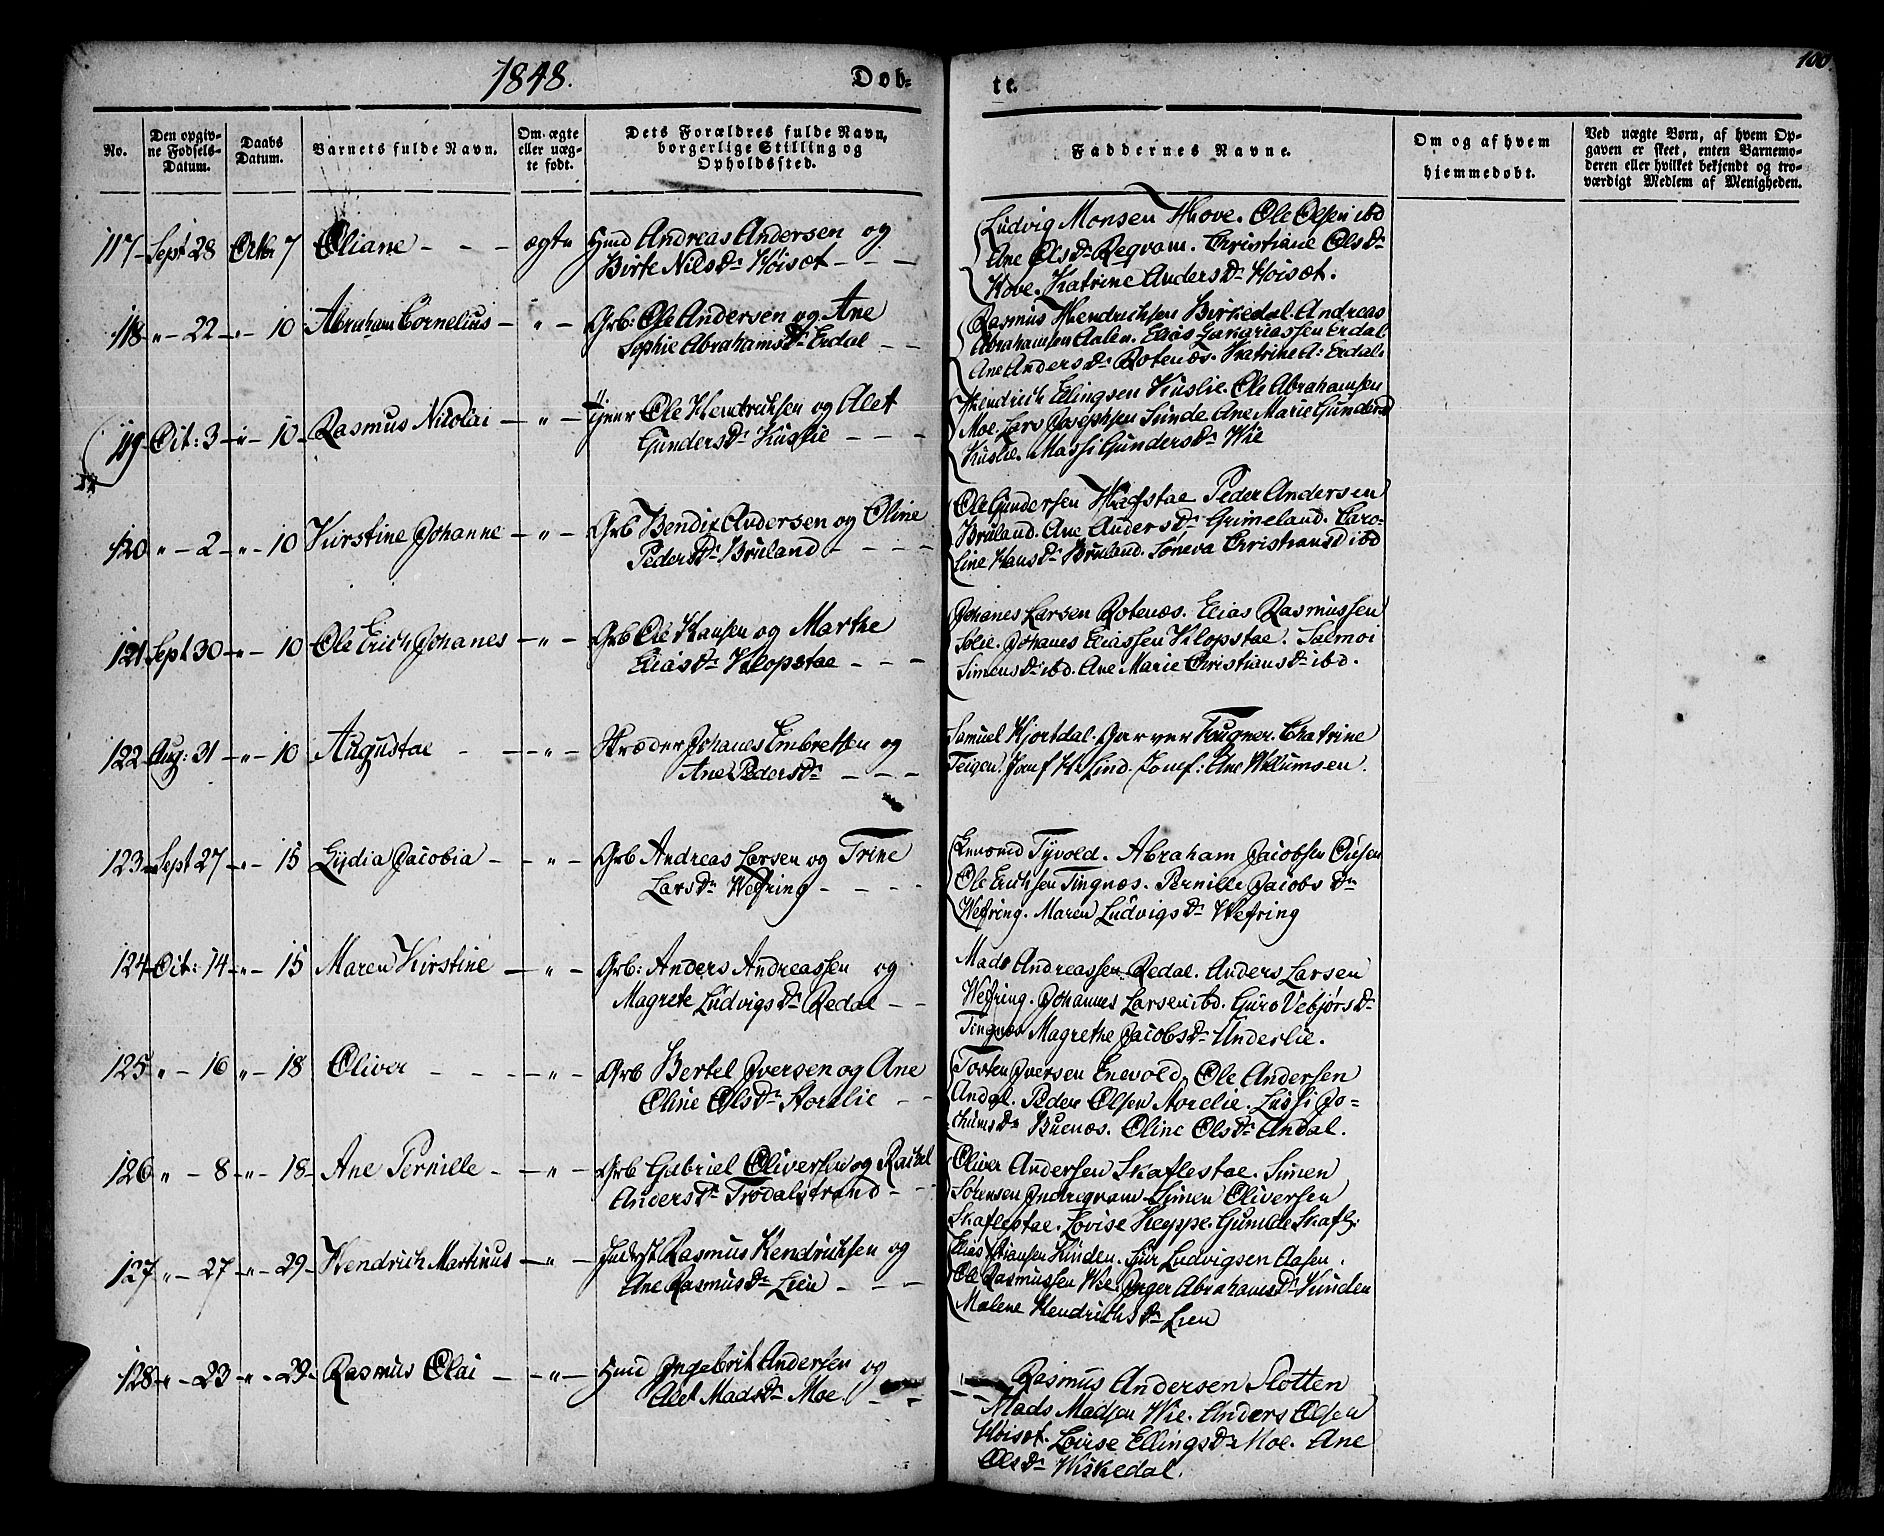 1848.
Døb-
te.
100.
No.
Den opgiv-
ne Fødsels-
Datum.
Daabs
Datum.
Barnets fulde Navn.
Om ægte
eller uæg-
te født.
Dets Forældres fulde Navn,
borgerlige Stilling og
Opholdssted.
Faddernes Navne.
Om og af hvem
hjemmedøbt.
Ved uægte Børn, af hvem Op-
gaven er skeet, enten Barnemo-
deren eller hvilket bekjendt og tro-
værdigt Medlem af Menigheden.
117 Sept 28 Octbr 7 Oliane - - - ægte Hmd Andreas Andersen og
Birte Nilsdr Høiset - - -
Ludvig Monsen Hove. Ole Olsen ibd
Ane Olsdr Reqvam. Christiane Olsdr
Hove. Katrine Andersdr Høiset.
118 " - 22 - " - 10 Abraham Cornelius - " - Grb: Ole Andersen og Ane
Sophie Abrahamsdr Erdal - -
Rasmus Hendrichsen Birkedal. Andreas
Abrahamsen Aalen. Elias Zakariassen Erdal
Ane Andersdr Rotenæs. Katrine A: Erdal.
119 Oct: 3 - " - 10 - Rasmus Nicolai - " - Ole Hendrichsen og Alet
Gundersdr Kuslie - - -
Hendrich Ellingsen Kuslie. Ole Abrahamsen
Moe. Lars Josephsen Sunde Ane Marie Gundersd
Kuslie. Massi Gundersdr Wie
120 " - 2 - " - 10 Kirstine Johanne - " - Grb Bendix Andersen og Oline
Pedersdr Bruland - - - -
Ole Gundersen Hafstae Peder Andersen
Bruland. Ane Andersdr Grimeland. Caro-
line Hansdr Bruland. Søneva Christiansd ibd
121 Sept 30 - " - 10 Ole Erich Johanes - " - Grb Ole Hansen og Marthe
Eliasdr Klopstae - - -
Johanes Larsen Rotenæs. Elias Rasmussen
Solie. Johanes Eliassen Klopstae. Salmoi
Simensdr ibd. Ane Marie Christiansdr ibd.
122 Aug: 31 - " - 10 Augustae - - " - Skræder Johanes Embretsen og
Ane Pedersdr - - -
Samuel Hjortdal. Garver Fougner. Chatrine
Teigen. Jomf H: Lind. Jomf: Ane Willumsen.
123 Sept 27 - " - 15 Lydia Jacobia - - " - Grb Andreas Larsen og Trine
Larsdr Wefring - - - -
Tyvold. Abraham Jacobsen
Ole Erichsen Tingnæs. Pernille Jacobsdr
Wefring. Maren Ludvigsdr Wefring
124 Oct: 14 - " - 15 Maren Kirstine - " - Grb: Anders Andreassen og
Magrete Ludvigsdr Redal - -
Mads Andreassen Redal. Anders Larsen
Wefring. Johannes Larsen ibd. Guro Vebjørsdr
Tingnæs Magrethe Jacobsdr Underlie.
125 " - 16 " - 18 Oliver - - - " - Grb Bertel Iversen og Ane
Oline Olsdr Aarelie - -
Torsten Iversen Enevold. Ole Andersen
Andal. Peder Olsen Aarelie. Lussi Jo-
chumsdr Buenæs. Oline Olsdr Andal.
126 " - 8 - " - 18 - Ane Pernille - - " - Grb Gabriel Oliversen og Rachel
Andersdr Trodalstrand - -
Oliver Andersen Skaflestae. Simen
Simen Oliversen
Skaflestae. Lovise Heyppe. Gunilde Skafl:
127 " - 27 - " - 29 - Hendrich Martinus - " - Inderst Rasmus Hendrichsen og
Ane Rasmusdr Lien - - -
Elias Hansen Kinden. Siur Ludvigsen Aasen.
Ole Rasmussen Wie. Inger Abrahamsdr Kinden
Malene Hendrichsdr Lien
128 " - 23 " - 29 - Rasmus Olai - - " - Hmd Ingebrit Andersen og
Alet Madsdr Moe. - -
Rasmus Andersen Slotten
Mads Madsen Wie. Anders Olsen
Høiset. Lovise Ellingsdr Moe. Ane
Olsdr Wiskedal.